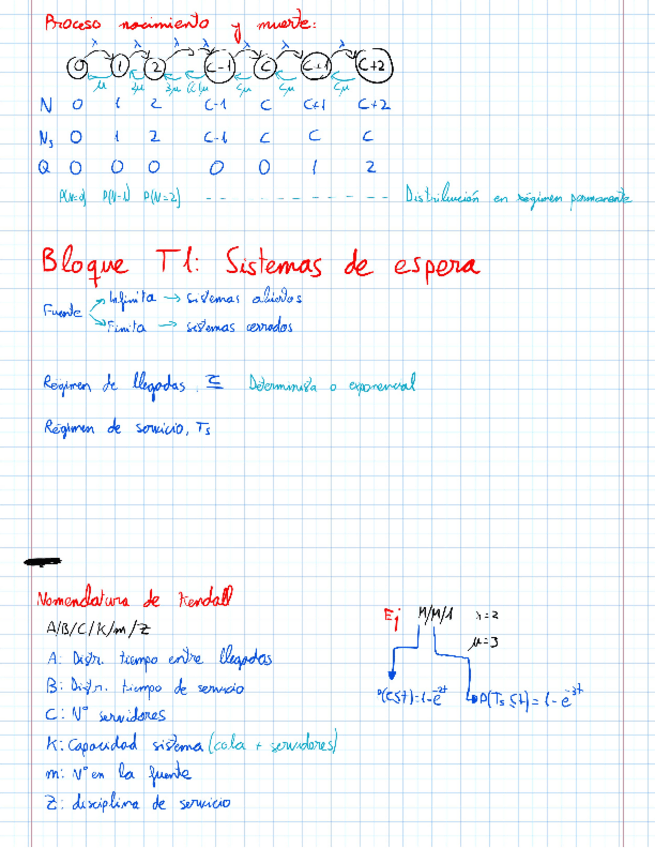 Proceso nacimiento y muerte:
λ λ λ λ λ λ λ
0 1 2 C-1 C C+1 C+2
μ 2μ 3μ Cμ Cμ Cμ
N 0 1 2 C-1 C C+1 C+2
Ns 0 1 2 C-1 C C C
Q 0 0 0 0 0 1 2
P(N=0) P(N=1) P(N=2) - - - - - - - - - - - - - Distribución en régimen permanente
Bloque T1: Sistemas de espera
Fuente
Infinita → sistemas abiertos
Finita → sistemas cerrados
Régimen de llegadas, τ Determinista o exponencial
Régimen de servicio, Ts
Nomenclatura de Kendall
A/B/C/K/m/Z
A: Distr. tiempo entre llegadas
B: Distr. tiempo de servicio
C: Nº servidores
K: Capacidad sistema (cola + servidores)
m: Nº en la fuente
Z: disciplina de servicio
Ej M/M/1 λ=2
μ=3
P(τ≤t)=1-e^-2t P(Ts≤t)=1-e^-3t